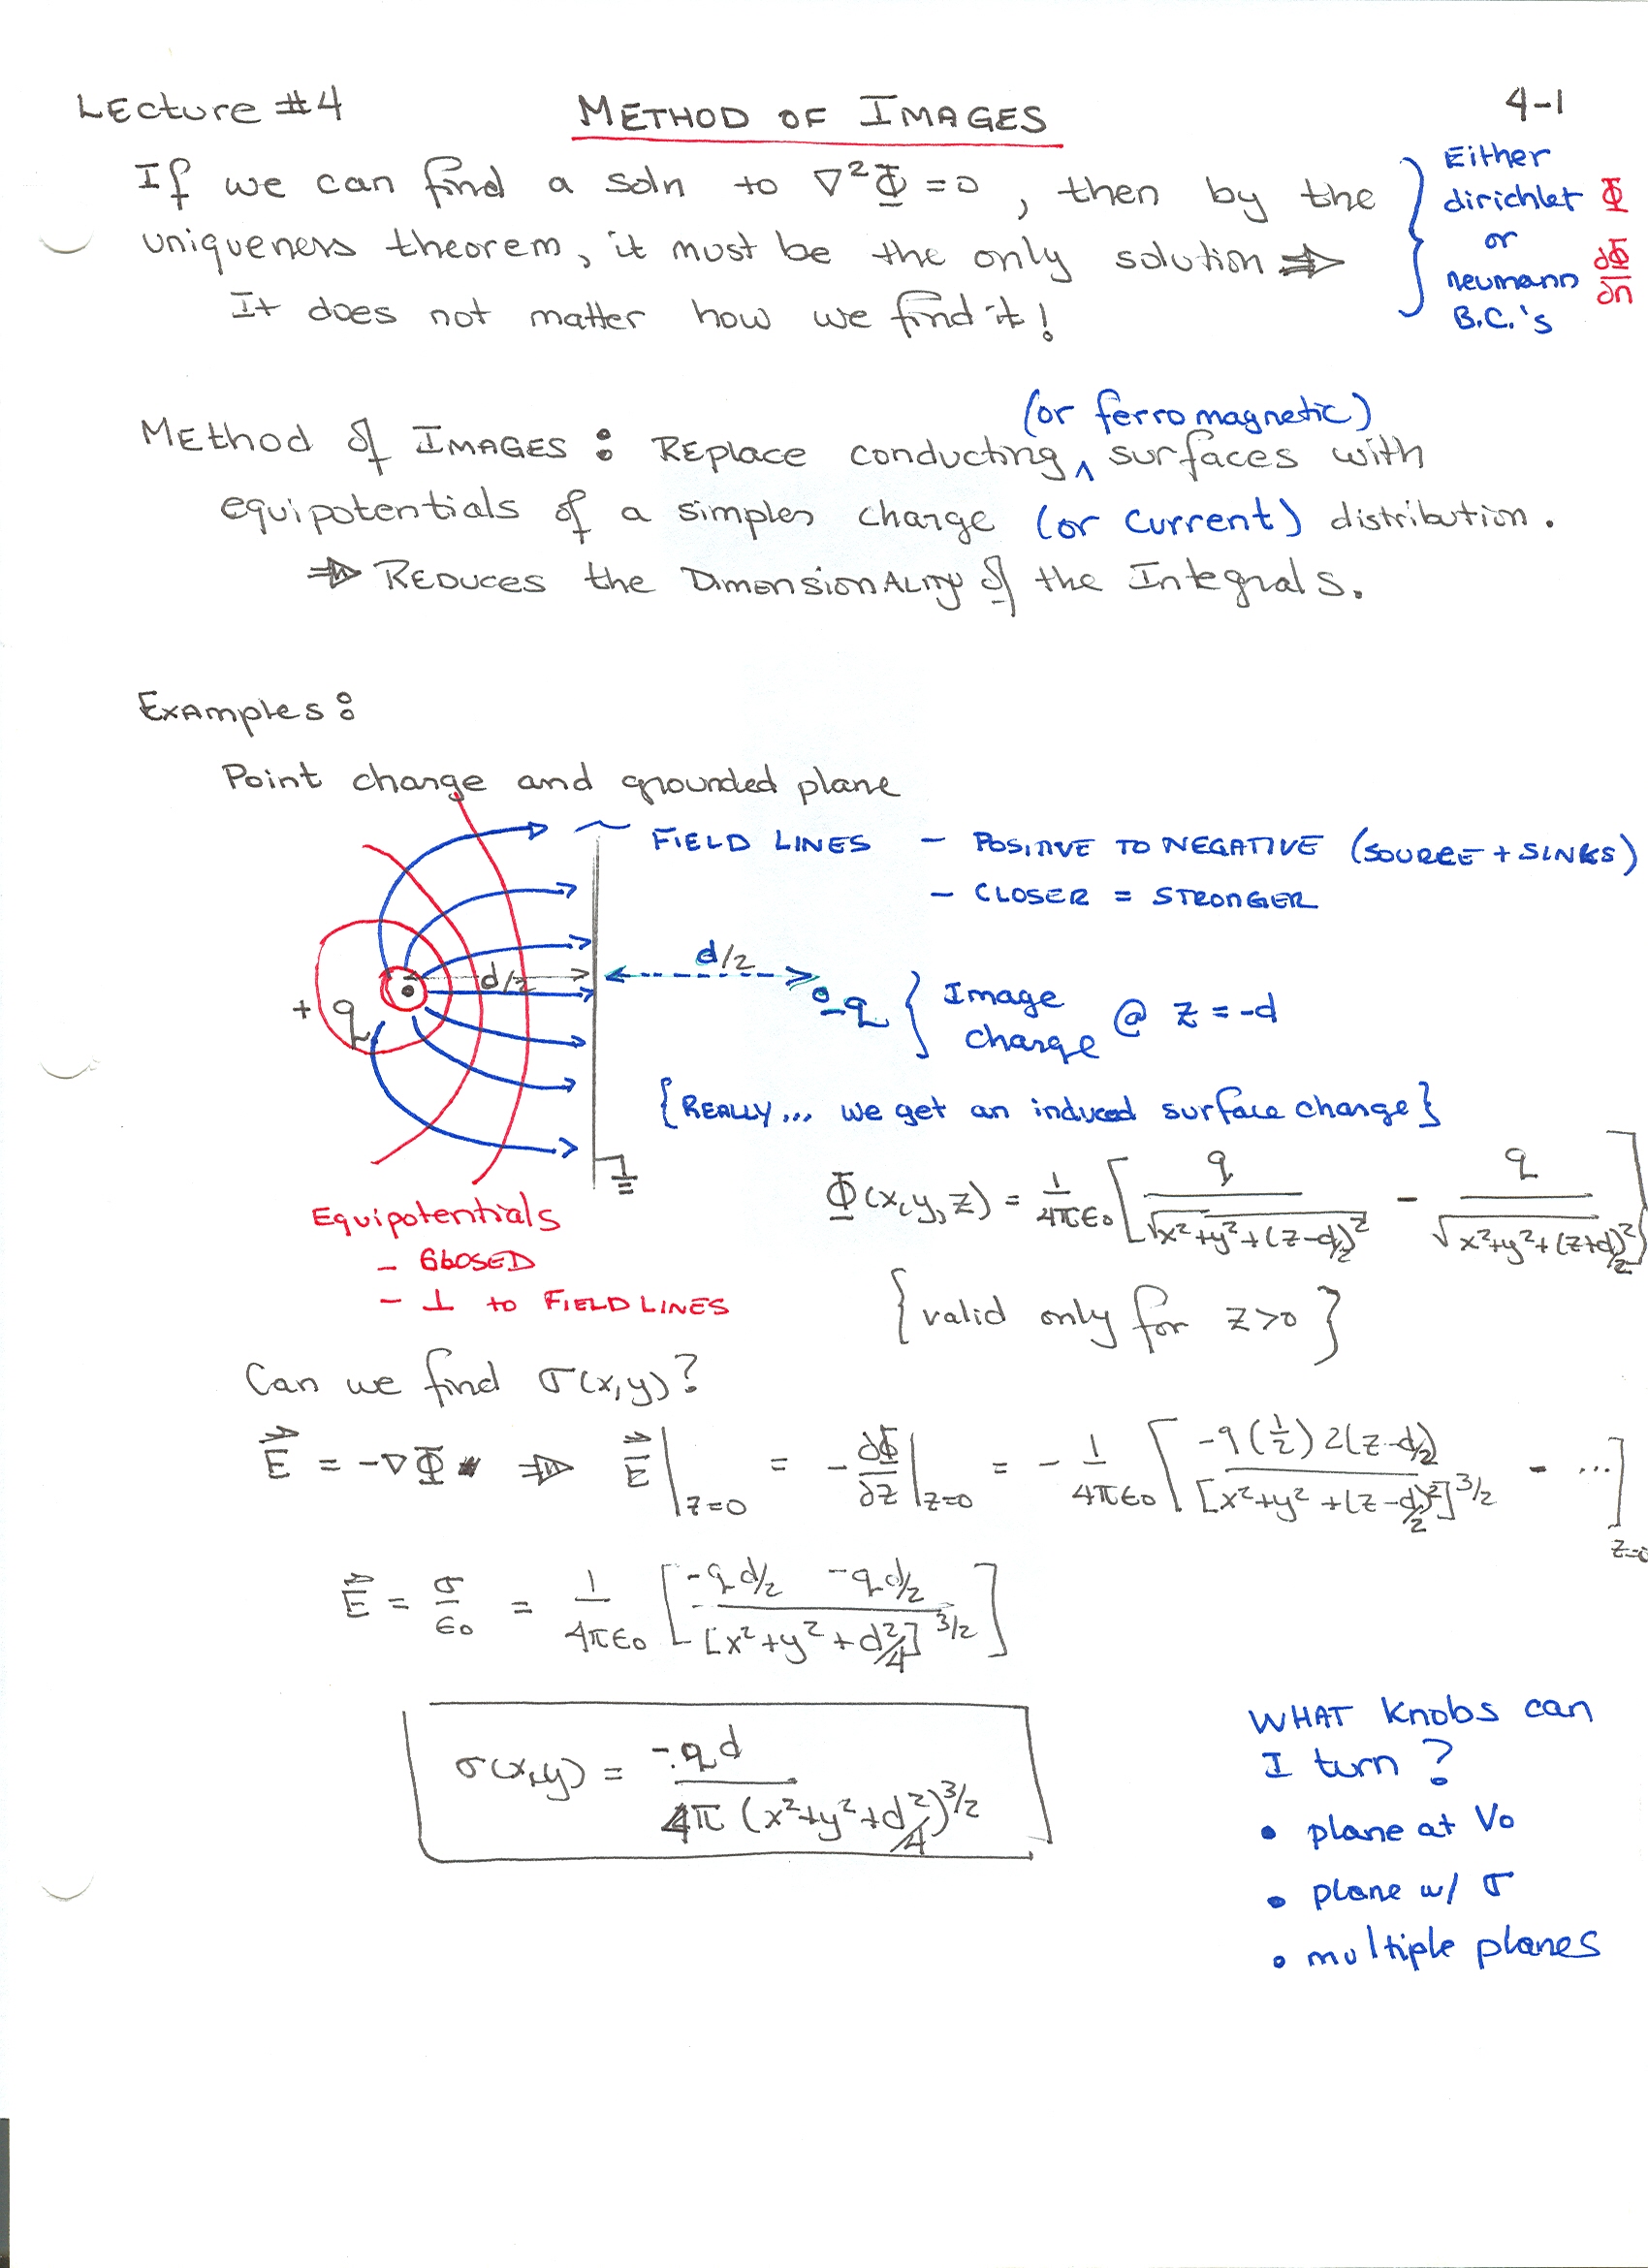 Lecture #4 METHOD OF IMAGES 4-1
If we can find a soln to ∇²Φ = 0, then by the
uniqueness theorem, it must be the only solution ⇒
It does not matter how we find it!
} Either
dirichlet Φ
or
neumann ∂Φ/∂n
B.C.'s
(or ferromagnetic)
Method of IMAGES : Replace conducting ^ surfaces with
equipotentials of a simpler charge (or current) distribution.
⇒ Reduces the Dimensionality of the Integrals.
Examples:
Point charge and grounded plane
FIELD LINES - POSITIVE TO NEGATIVE (SOURCE + SINKS)
- CLOSER = STRONGER
d/2
d/2
+q
-q { Image charge @ z = -d
{REALLY... we get an induced surface charge}
Φ(x,y,z) = 1/4πε₀ [ q/√(x²+y²+(z-d/2)²) - q/√(x²+y²+(z+d/2)²) ]
Equipotentials
- CLOSED
- ⊥ to FIELD LINES
{valid only for z>0}
Can we find σ(x,y)?
E⃗ = -∇Φ ⇒ E⃗|z=0 = -∂Φ/∂z|z=0 = -1/4πε₀ [ -q(1/2)2(z-d/2)/[x²+y²+(z-d/2)²]^3/2 - ... ]z=0
E⃗ = σ/ε₀ = 1/4πε₀ [ -q d/2 -q d/2 / [x²+y²+d²/4]^3/2 ]
σ(x,y) = -qd / 4π(x²+y²+d²/4)^3/2
WHAT knobs can
I turn?
• plane at V₀
• plane w/ σ
• multiple planes